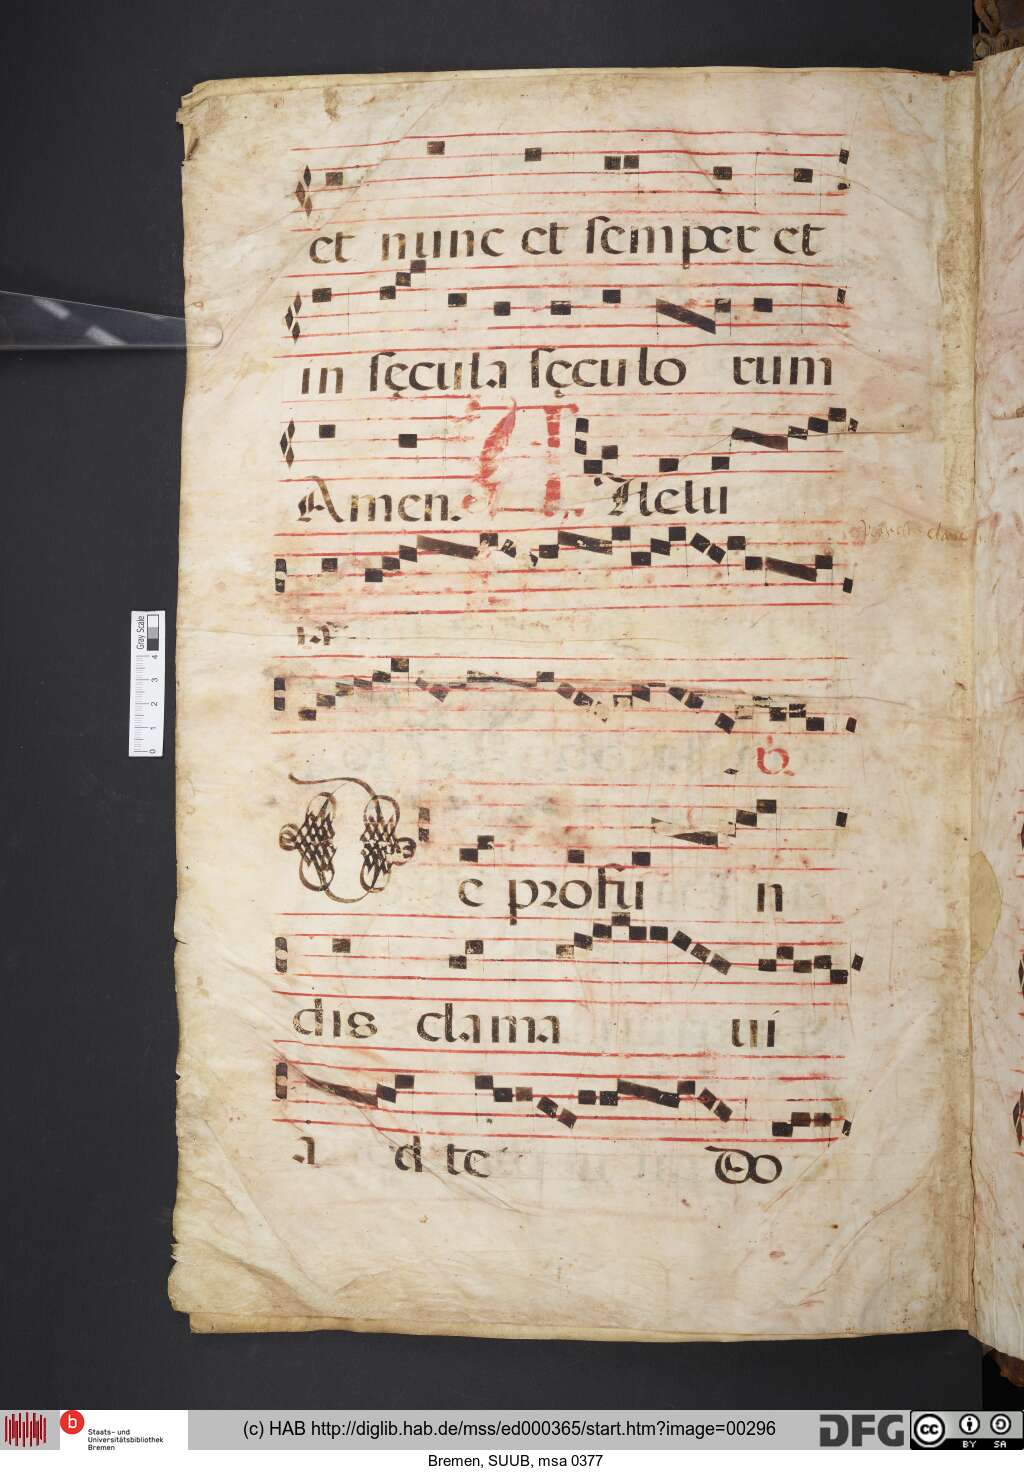 et nunc et semper et
in sęcula sęculo rum
Amen. A llelu
ia
℣
De profu n
dis clama ui
a d te Do
Gray Scale
4
3
2
1
0
b Staats- und Universitätsbibliothek Bremen
(c) HAB http://diglib.hab.de/mss/ed000365/start.htm?image=00296
DFG
cc BY SA
Bremen, SUUB, msa 0377